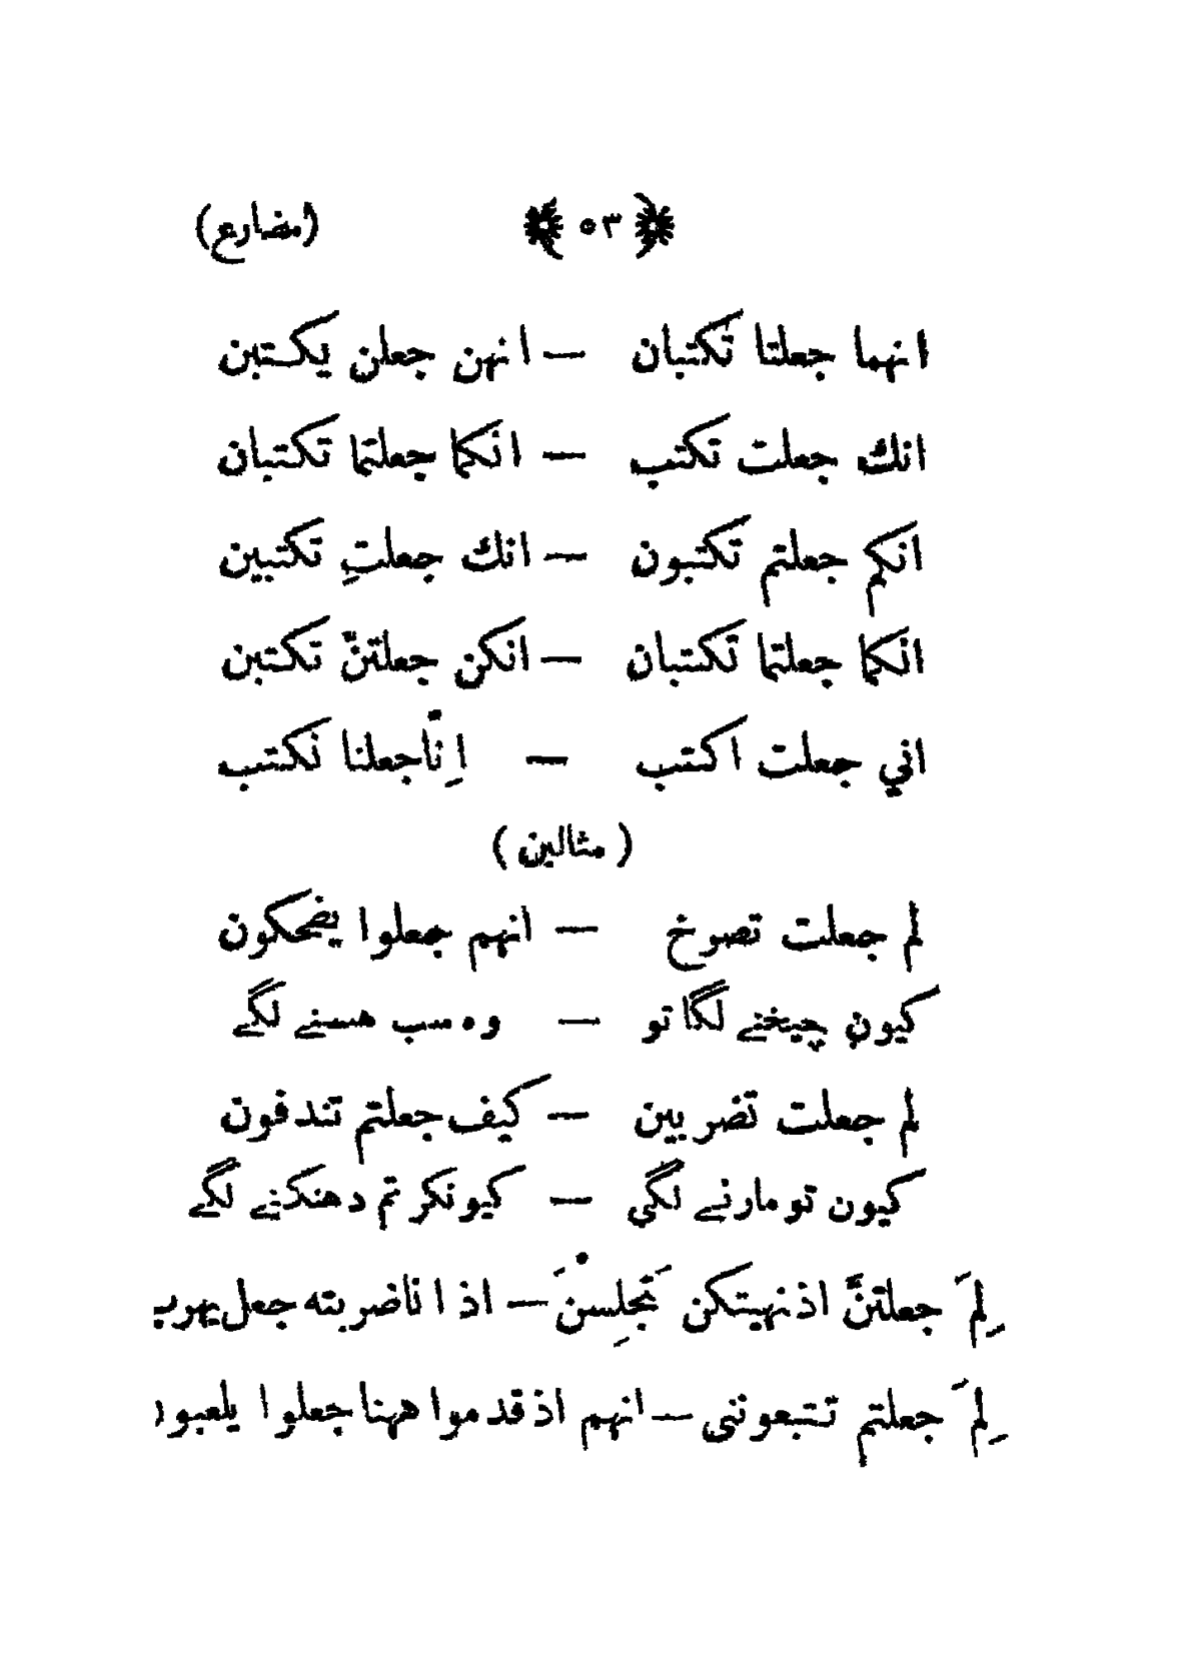 ﴿ ٥٣ ﴾ (مضارع)
انهما جعلتا تكتبان — انهن جعلن يكتبن
انك جعلت تكتب — انكما جعلتما تكتبان
انكم جعلتم تكتبون — انك جعلتِ تكتبين
انكما جعلتما تكتبان — انكن جعلتنّ تكتبن
اني جعلت اكتب — اِنّا جعلنا نكتب
( مثالين )
لم جعلت تصرخ — انهم جعلوا يضحكون
کیون چیخنے لگا تو — وہ سب ھسنے لگے
لم جعلت تضربين — كيف جعلتم تندفون
کیون تو مارنے لگی — کیونکر تم دھنکنے لگے
لِمَ جعلتنّ اذ نهيتكن تَجلِسنَ — اذ انا ضربته جعل يهرب
لِمَ جعلتم تتبعوننى — انهم اذ قدموا ههنا جعلوا